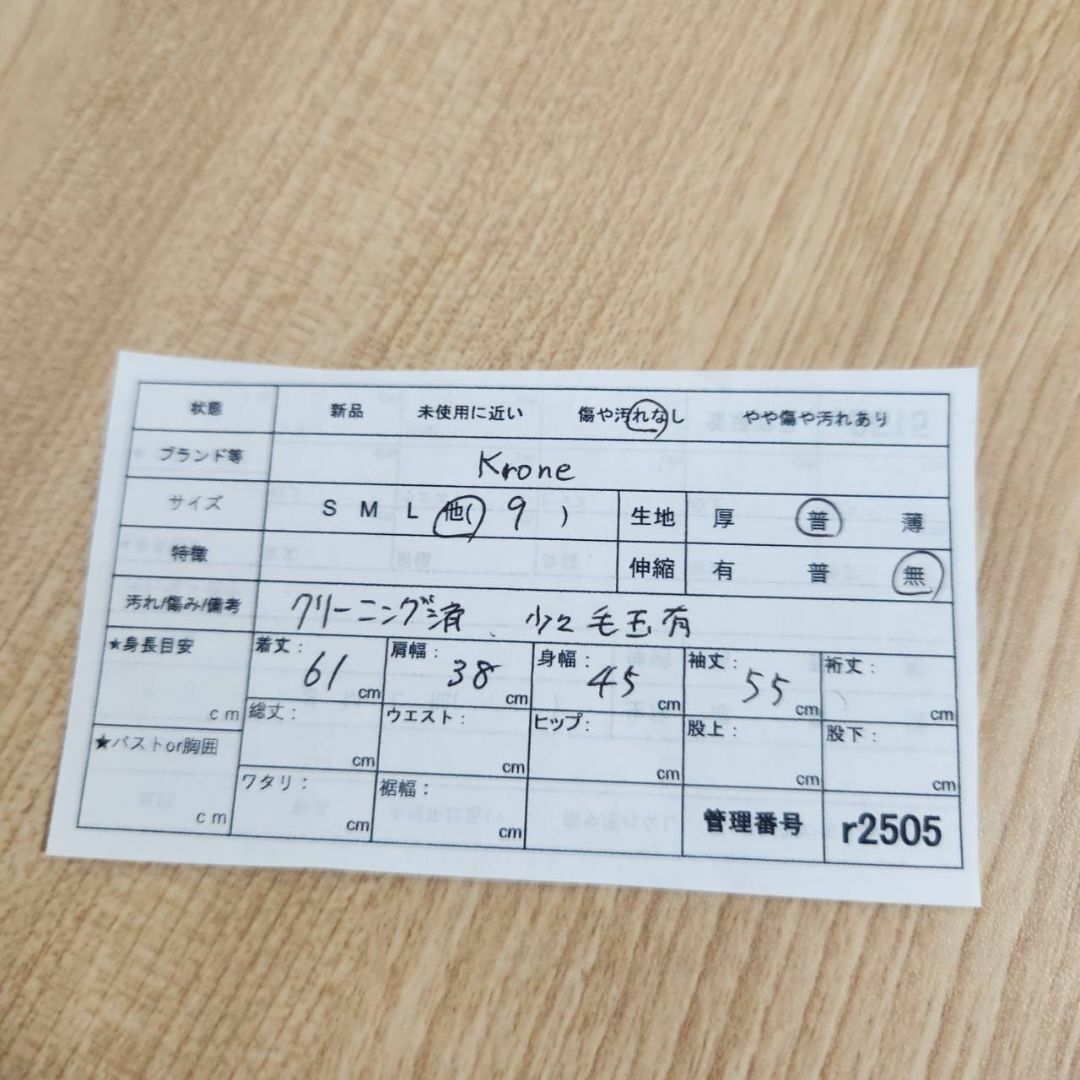 状態 新品 未使用に近い 傷や汚れなし やや傷や汚れあり
ブランド等 Krone
サイズ S M L 他( 9 ) 生地 厚 普 薄
特徴 伸縮 有 普 無
汚れ/傷み/備考 クリーニング済、少々毛玉有
★身長目安 cm 着丈: 61 cm 肩幅: 38 cm 身幅: 45 cm 袖丈: 55 cm 裄丈: cm
総丈: cm ウエスト: cm ヒップ: cm 股上: cm 股下: cm
★バストor胸囲 cm ワタリ: cm 裾幅: cm 管理番号 r2505